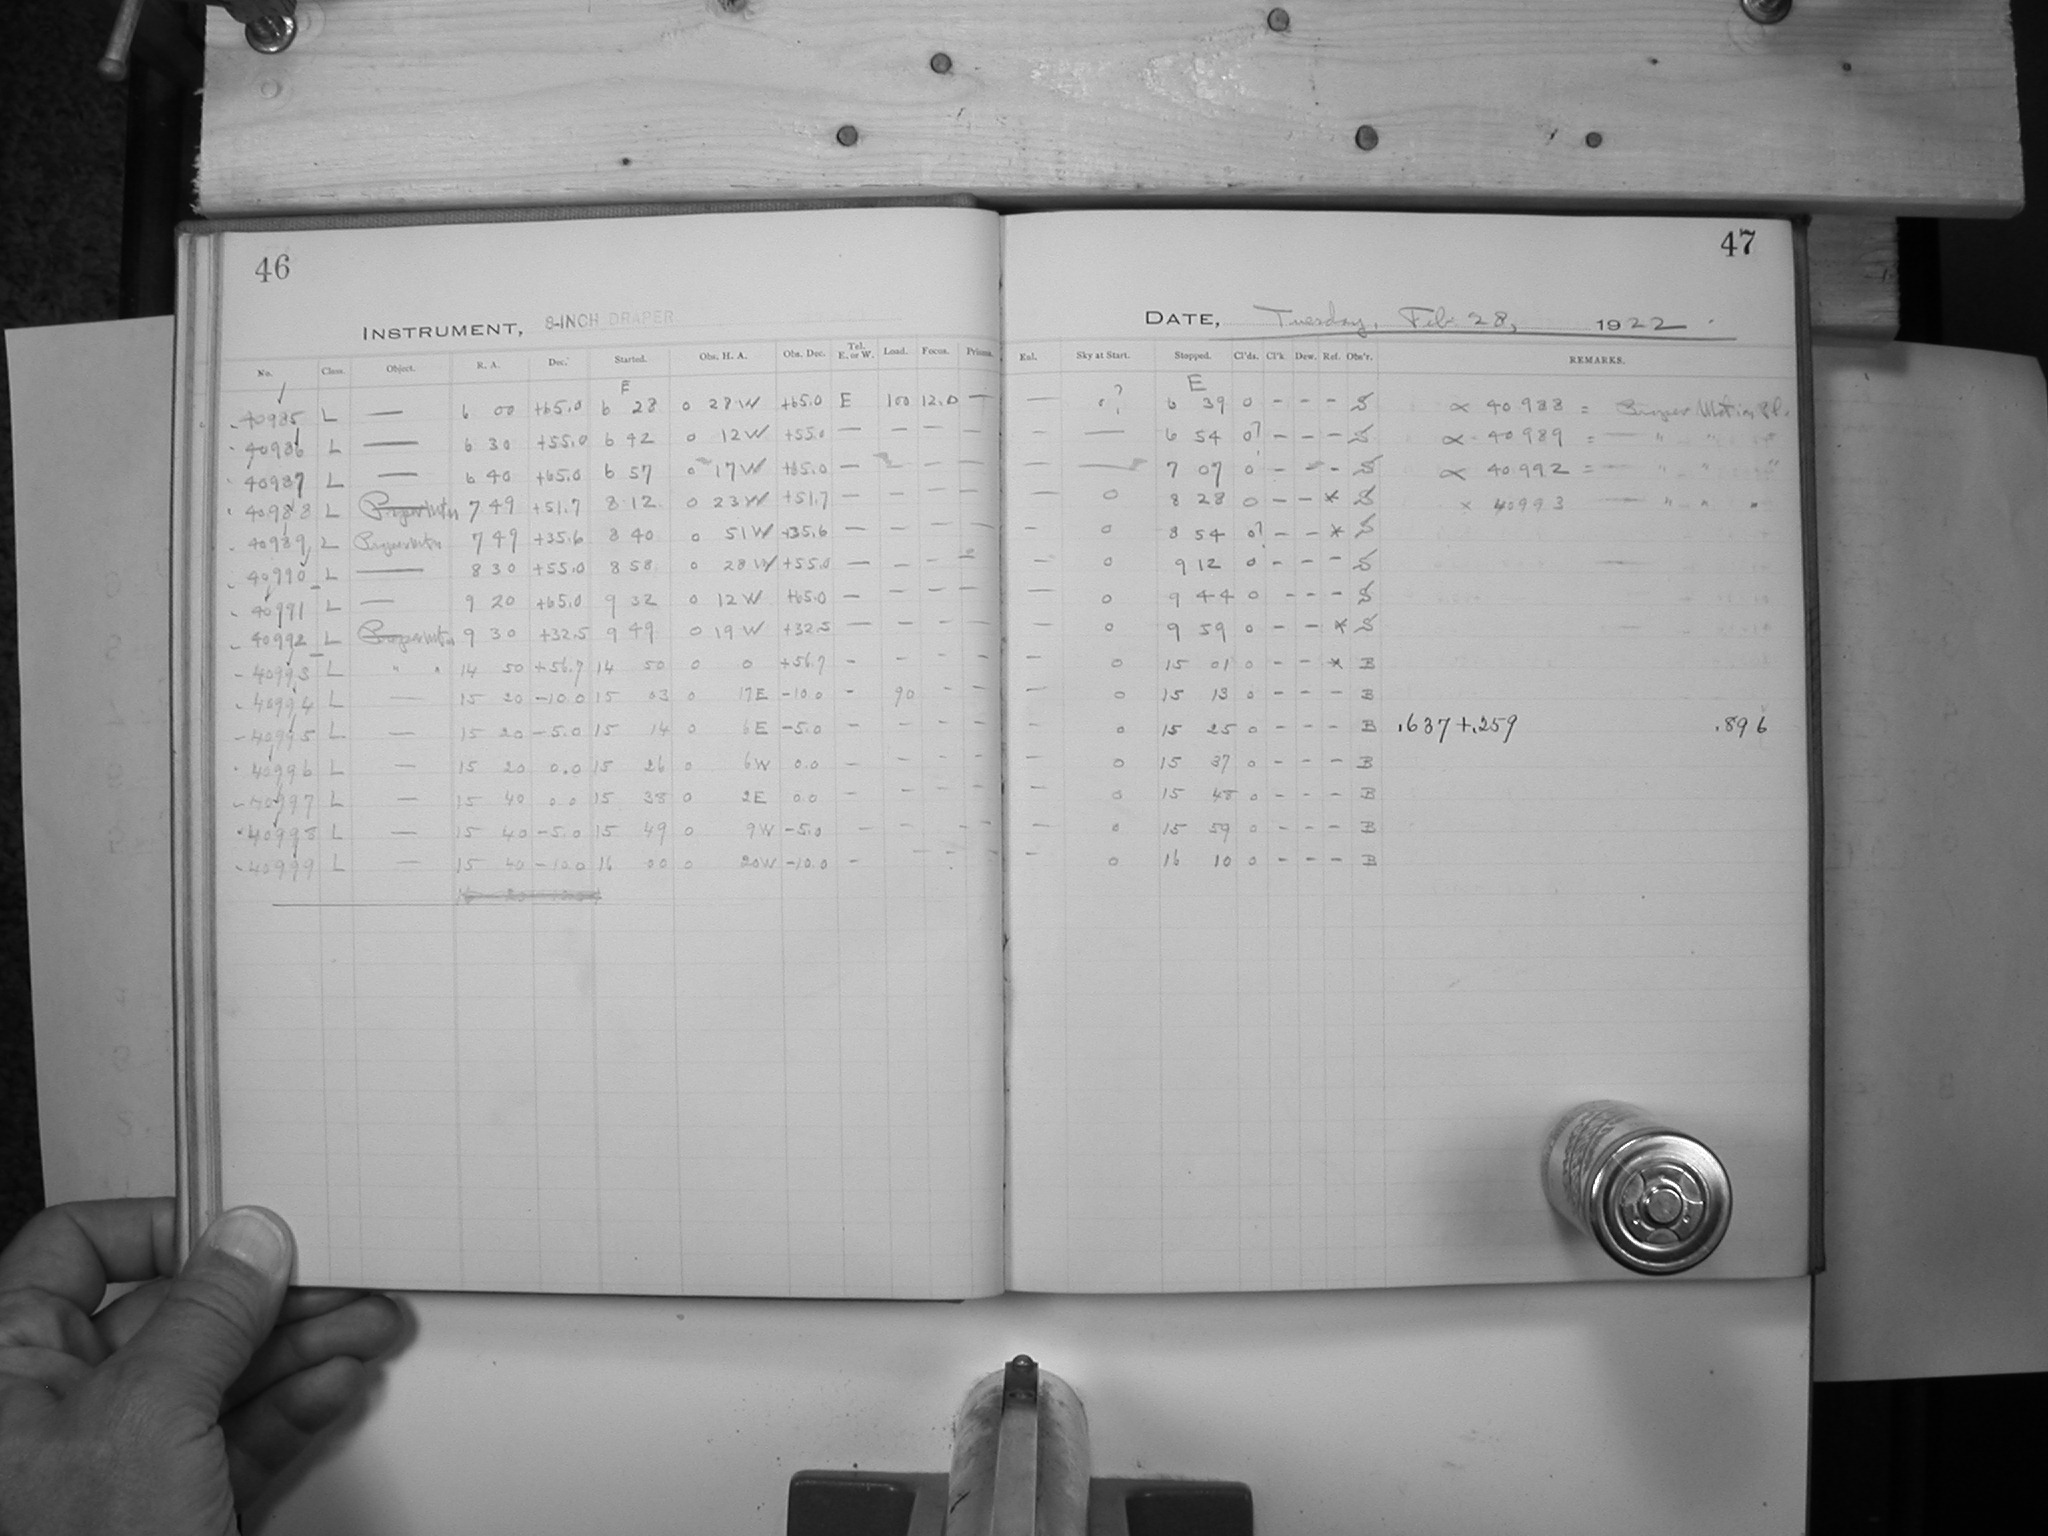 46
47
INSTRUMENT, 8-INCH DRAPER
DATE, Tuesday, Feb. 28, 1922.
No. Class. Object. R. A. Dec. Started. Obs. H. A. Obs. Dec. Tel. E. or W. Load. Focus. Prisms. Exl. Sky at Start. Stopped. Cl'ds. Cl'k. Dew. Ref. Obs'r. REMARKS.
E E
40985 L — 6 00 +65.0 6 28 0 27W +65.0 E 100 12.0 — — ? 6 39 0 - - - S × 40988 = Proper Motion Pl.
40986 L — 6 30 +55.0 6 42 0 12W +55.0 — — — — — — 6 54 0? - - - S × 40989 = — " " "
40987 L — 6 40 +65.0 6 57 0 17W +65.0 — — — — — — 7 07 0 - - - S × 40992 = — " " "
40988 L Proper Mtn 7 49 +51.7 8 12 0 23W +51.7 — — — — — 0 8 28 0 - - * S × 40993 — " " "
40989 L Proper Mtn 7 49 +35.6 8 40 0 51W +35.6 — — — — — 0 8 54 0? - - * S
40990 L — 8 30 +55.0 8 58 0 28W +55.0 — — — — 0 9 12 0 - - - S
40991 L — 9 20 +65.0 9 32 0 12W +65.0 — — — — — 0 9 44 0 - - - S
40992 L Proper Mtn 9 30 +32.5 9 49 0 19W +32.5 — — — — 0 9 59 0 - - * S
40993 L " " 14 50 +56.7 14 50 0 0 +56.7 - - - - - 0 15 01 0 - - * B
40994 L — 15 20 -10.0 15 03 0 17E -10.0 - 90 - - - 0 15 13 0 - - - B
40995 L — 15 20 -5.0 15 14 0 6E -5.0 - - - - - 0 15 25 0 - - - B .637+.259 .896
40996 L — 15 20 0.0 15 26 0 6W 0.0 - - - - - 0 15 37 0 - - - B
40997 L — 15 40 0.0 15 38 0 2E 0.0 - - - - - 0 15 48 0 - - - B
40998 L — 15 40 -5.0 15 49 0 9W -5.0 - - - - - 0 15 59 0 - - - B
40999 L — 15 40 -10.0 16 00 0 20W -10.0 - - - - - 0 16 10 0 - - - B